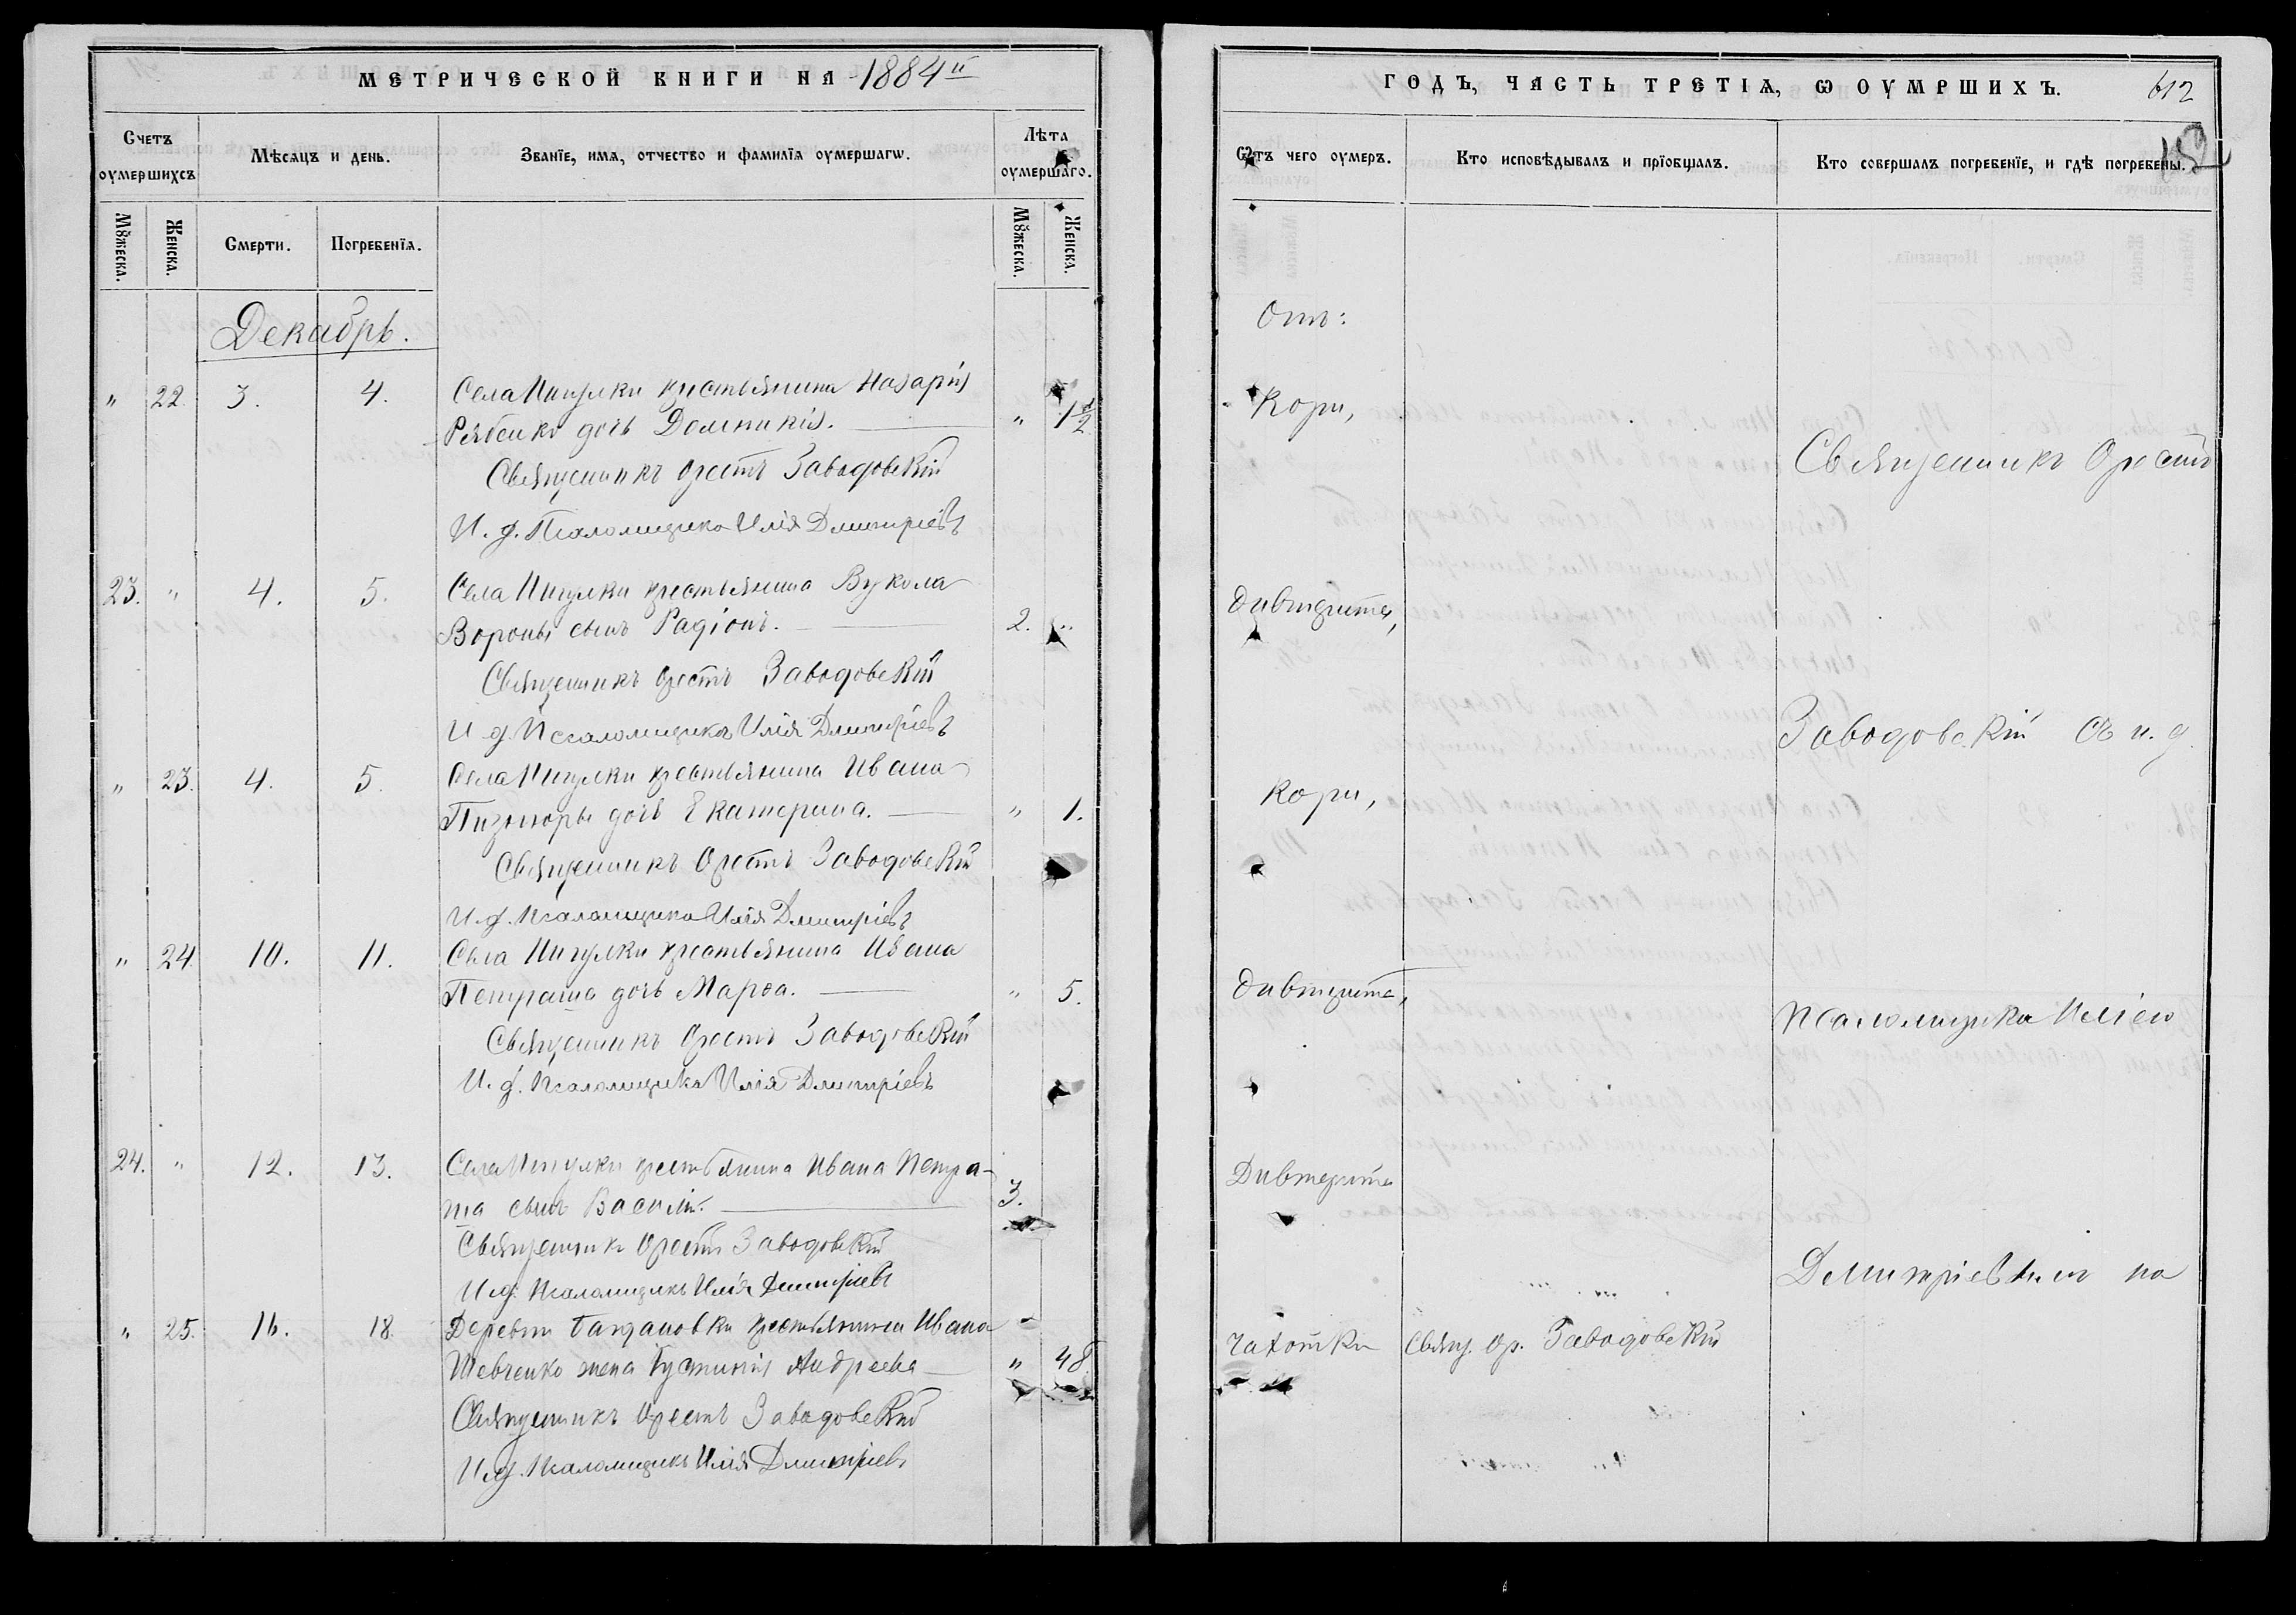 МЕТРИЧЕСКОЙ КНИГИ НА 1884й
Счетъ оумершихсѧ
Мѣсѧцъ и день.
Званїе, имѧ, отчество и фамилїѧ оумершагѡ.
Лѣта оумершаго.
Мꙋжеска.
Женска.
Смерти.
Погребенїѧ.
Мꙋжеска.
Женска.
Декабрь.
" 22. 3. 4. Села Пигулки крестьянина Назарія
Рябенко дочь Домникія. " 1 1/2
Священникъ Орестъ Заводовскій
И. д. Псаломщика Илія Дмитріевъ
23. " 4. 5. Села Пигулки крестьянина Вукола
Вороны сынъ Радіонъ. 2. "
Священникъ Орестъ Заводовскій
И д. Псаломщика Илія Дмитріевъ
" 23. 4. 5. Села Пигулки крестьянина Ивана
дочь Екатерина. " 1.
Священникъ Орестъ Заводовскій
И. д. Псаломщика Илія Дмитріевъ
" 24 10. 11. Села Пигулки крестьянина Ивана
Петраша дочь Марѳа. " 5.
Священникъ Орестъ Заводовскій
И. д. Псаломщика Илія Дмитріевъ
24. " 12. 13. Села Пигулки крестьянина Ивана Петра-
ша сынъ Василій. 3.
Священникъ Орестъ Заводовскій
И д. Псаломщика Илія Дмитріевъ
" 25. 16. 18. Деревни Богдановки крестьянина Ивана
Шевченко жена Іустинія Андреева " 48
Священникъ Орестъ Заводовскій
И д. Псаломщикъ Илія Дмитріевъ
ГОДЪ, ЧАСТЬ ТРЕТІѦ, Ѡ ОУМРШИХЪ. 612
152
Ѿтъ чего оумеръ.
Кто исповѣдывалъ и прїобщалъ.
Кто совершалъ погребенїе, и гдѣ погребены.
Отъ:
Кори,
Священникъ Орестъ
Дивтерита,
Заводовскій съ и. д.
Кори,
Дивтерита,
псаломщика Иліею
Дивтерита
Дмитріевымъ на
Чахотки Свящ. Ор. Заводовскій